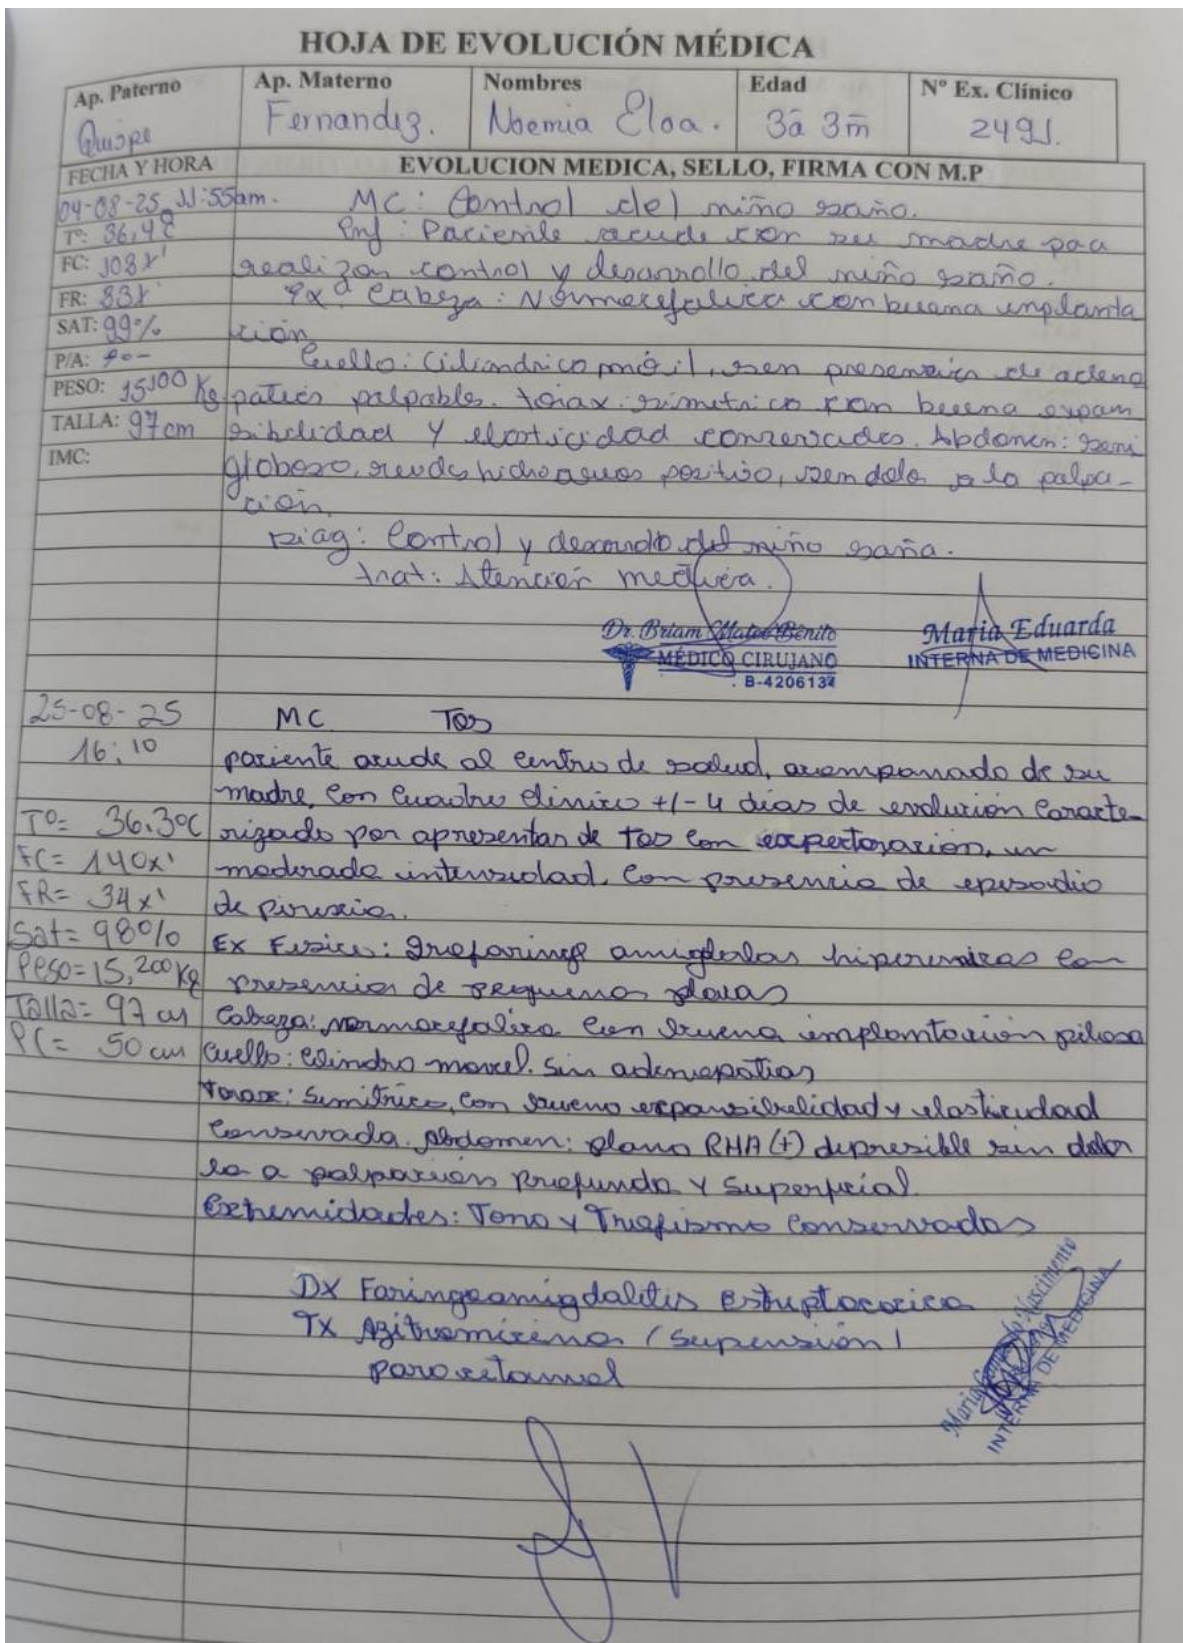 HOJA DE EVOLUCIÓN MÉDICA
Ap. Paterno Ap. Materno Nombres Edad Nº Ex. Clínico
Quispe Fernandez. Noemia Eloa. 3ā 3m̄ 2491.
FECHA Y HORA EVOLUCION MEDICA, SELLO, FIRMA CON M.P
04-08-25 11:55am. MC: Control del niño sano.
Tº: 36,4ºC Enf: Paciente acude con su madre paa
FC: 108x' realizan control y desarrollo del niño sano.
FR: 33x' Cabeza: Normocefalica con buena implanta
SAT: 99% ción
P/A: Cuello: Cilindrico móvil, sen presencia de adeno
PESO: 15100 Kg paties palpables. torax: simetrico con buena expam
TALLA: 97cm sibilidad y elasticidad conservades. Abdomen: semi
IMC: globoso, positivo, sen dolor a la palpa-
ción.
Diag: Control y desarrollo del niño sano.
trat: Atención medica.
Dr. Briam Mateo Benito
MÉDICO CIRUJANO
B-4206134
Maria Eduarda
INTERNA DE MEDICINA
25-08-25 MC Tos
16:10 paciente acude al centro de salud, acompanado de su
madre, con cuadro clinico +/- 4 dias de evolución caracte-
Tº= 36.3ºC rizado por apresentar de tos con expectoracion, un
FC= 140x' moderada intensidad, con presencia de episodio
FR= 34x' de pirexia.
Sat= 98% Ex Fisico: Orofaringe amigdalas hiperemicas con
Peso=15,200Kg presencia de pequenas placas
Talla= 97 cm Cabeza: normocefalica con buena implantacion pilosa
PC= 50 cm Cuello: cilindro movel. Sin adenopatias
Torax: Simitrico, con bueno expansibilidad y elasticidad
conservada. Abdomen: plano RHA (+) depresible sin dolor
la a palpacion profunda y superficial.
Extremidades: Tono y Trofismo conservados
DX Faringoamigdalitis estreptococica
TX Azitromicina (suspensión)
paracetamol
INTERNA DE MEDICINA